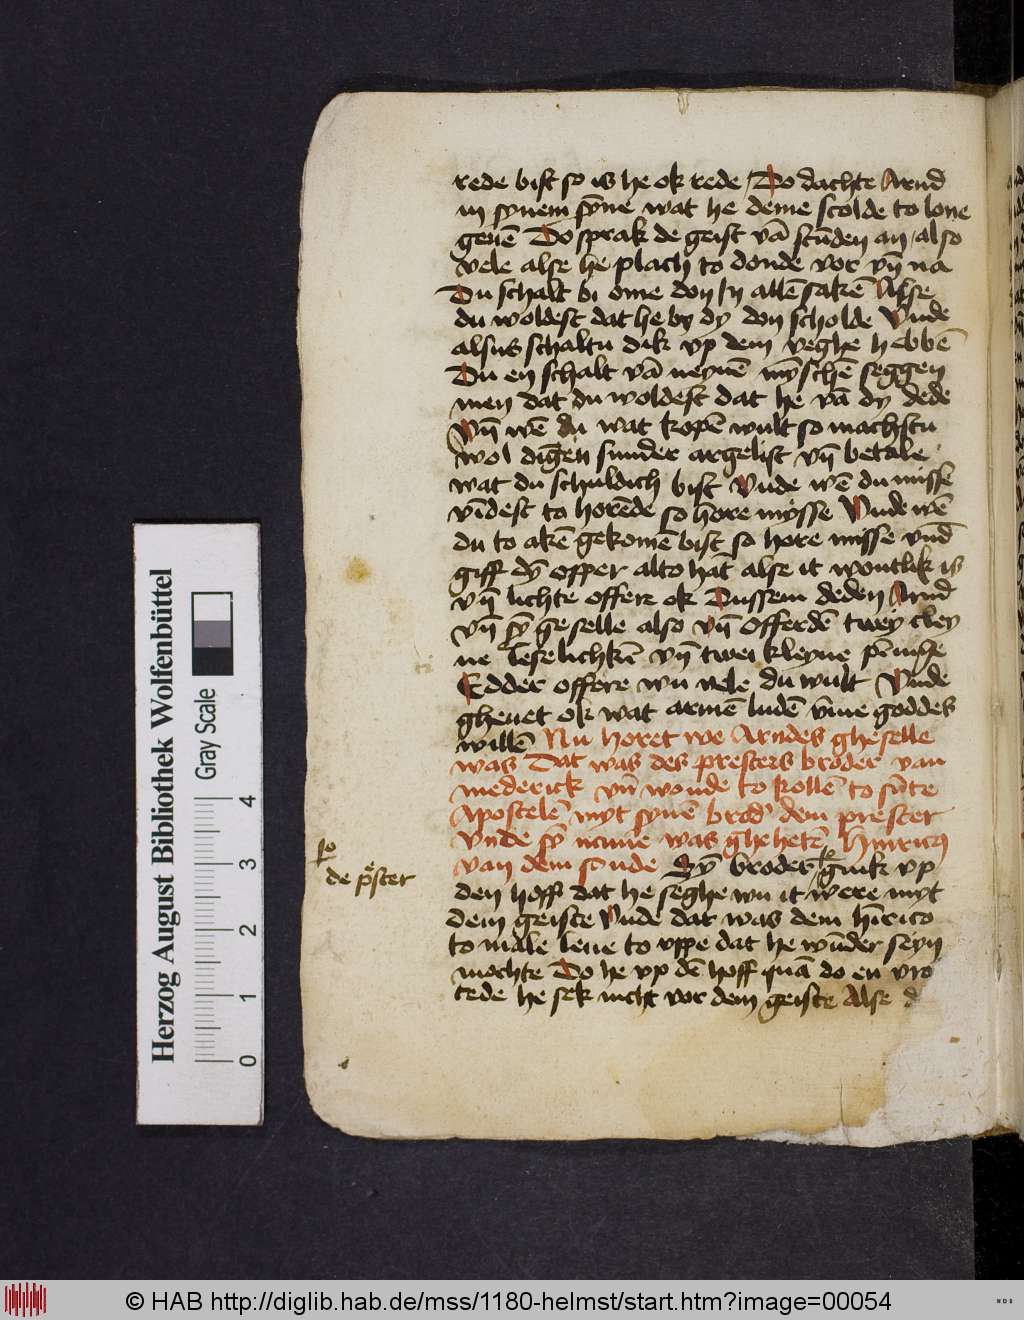 rede bist so is he ok rede Do dachte Arnd
in synem sȳne wat he deme scolde to lone
geuē Do sprak de geist vā stūden an also
vele alse he plach to donde vor vn̄ na
Du schalt bi ome don In allē sakē Alse
du woldest dat he by dy don scholde Vnde
alsus schaltu dik vp dem weghe hebbē
Du en schalt vā neynē mȳschē seggen
men dat du woldest dat he vā dy dede
Vn̄ wē du wat kopē wult so machstu
wol dīgen sunder argelist vn̄ betale
wat du schuldich bist Vnde wē du misse
vīdest to horēde so hore mysse Vnde wē
du to akē gekomē bist so hore misse vnd̄
giff dȳ opper alto hāt alse it wontlik is
vn̄ lichte offere ok Dussem deden Arnd
vn̄ sȳ geselle also vn̄ offerdē twey cley
ne lichkē vn̄ twei kleyne pēnighe
Edder offere wu vele du wult Vnde
gheuet ok wat armē ludē vm̄e goddes
willē Nu horet we Arndes gheselle
was Dat was des presters broder van
mederick vn̄ wonde to kollē to sūte
Apostelē myt synē brod' dem prester
Vnde sȳ name was ghehetē Hinricus
van dem sonde Sȳ broder gink vp
de p̄ster
den hoff dat he seghe wu it were myt
dem geiste Vnde dat was dem hīrico
to male leue to vppe dat he wūder seyn
mochte Do he vp dē hoff quā do en vro
tede he sek nicht vor dem geiste Alse d
Herzog August Bibliothek Wolfenbüttel
Gray Scale
0 1 2 3 4
© HAB http://diglib.hab.de/mss/1180-helmst/start.htm?image=00054